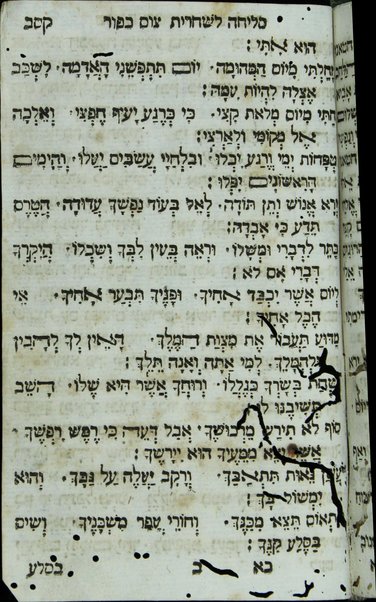 סליחה לשחרית צום כפור קסב
הוא אתי:
זחלתי מיום המהומה. יום תתפשני האדמה. לשכב
אצלה להיות עמה:
חתי מיום מלאת קצי. כי כרגע יעוף חפצי. ואלכה
אל מקומי ולארצי:
טפחות ימי ורגע יבלו. ובלחיי עשבים יעלו. והימים
הראשונים יפלו:
ירא אנוש ותן תודה. לאל בעוד נפשך עדודה. הטרם
תדע כי אבדה:
כתר לדברי ומשלו. וראה בעין לבך ושכלו. היקרך
דברי אם לא:
יום אשר יכבד אחיך. ופניך תבער אחיך. אי
הבל אחיך:
מדוע תעבור את מצות המלך. האין לך להבין
המלך. למי אתה ואנה תלך:
שחת בשרך בגללו. ורוחך אשר היא שלו. השב
תשיבנו לו
סוף לא תירש מרכושך. אבל דעה כי רפש רפשך
אשר יצא ממעיך הוא יירשך:
נאות תתאבך. ורקב יעלה על גבך. והוא
ימשול בך:
פתאום תצא מכנך. וחורי עפר משכנך. ושים
בסלע קנך:
כא ב בסלע